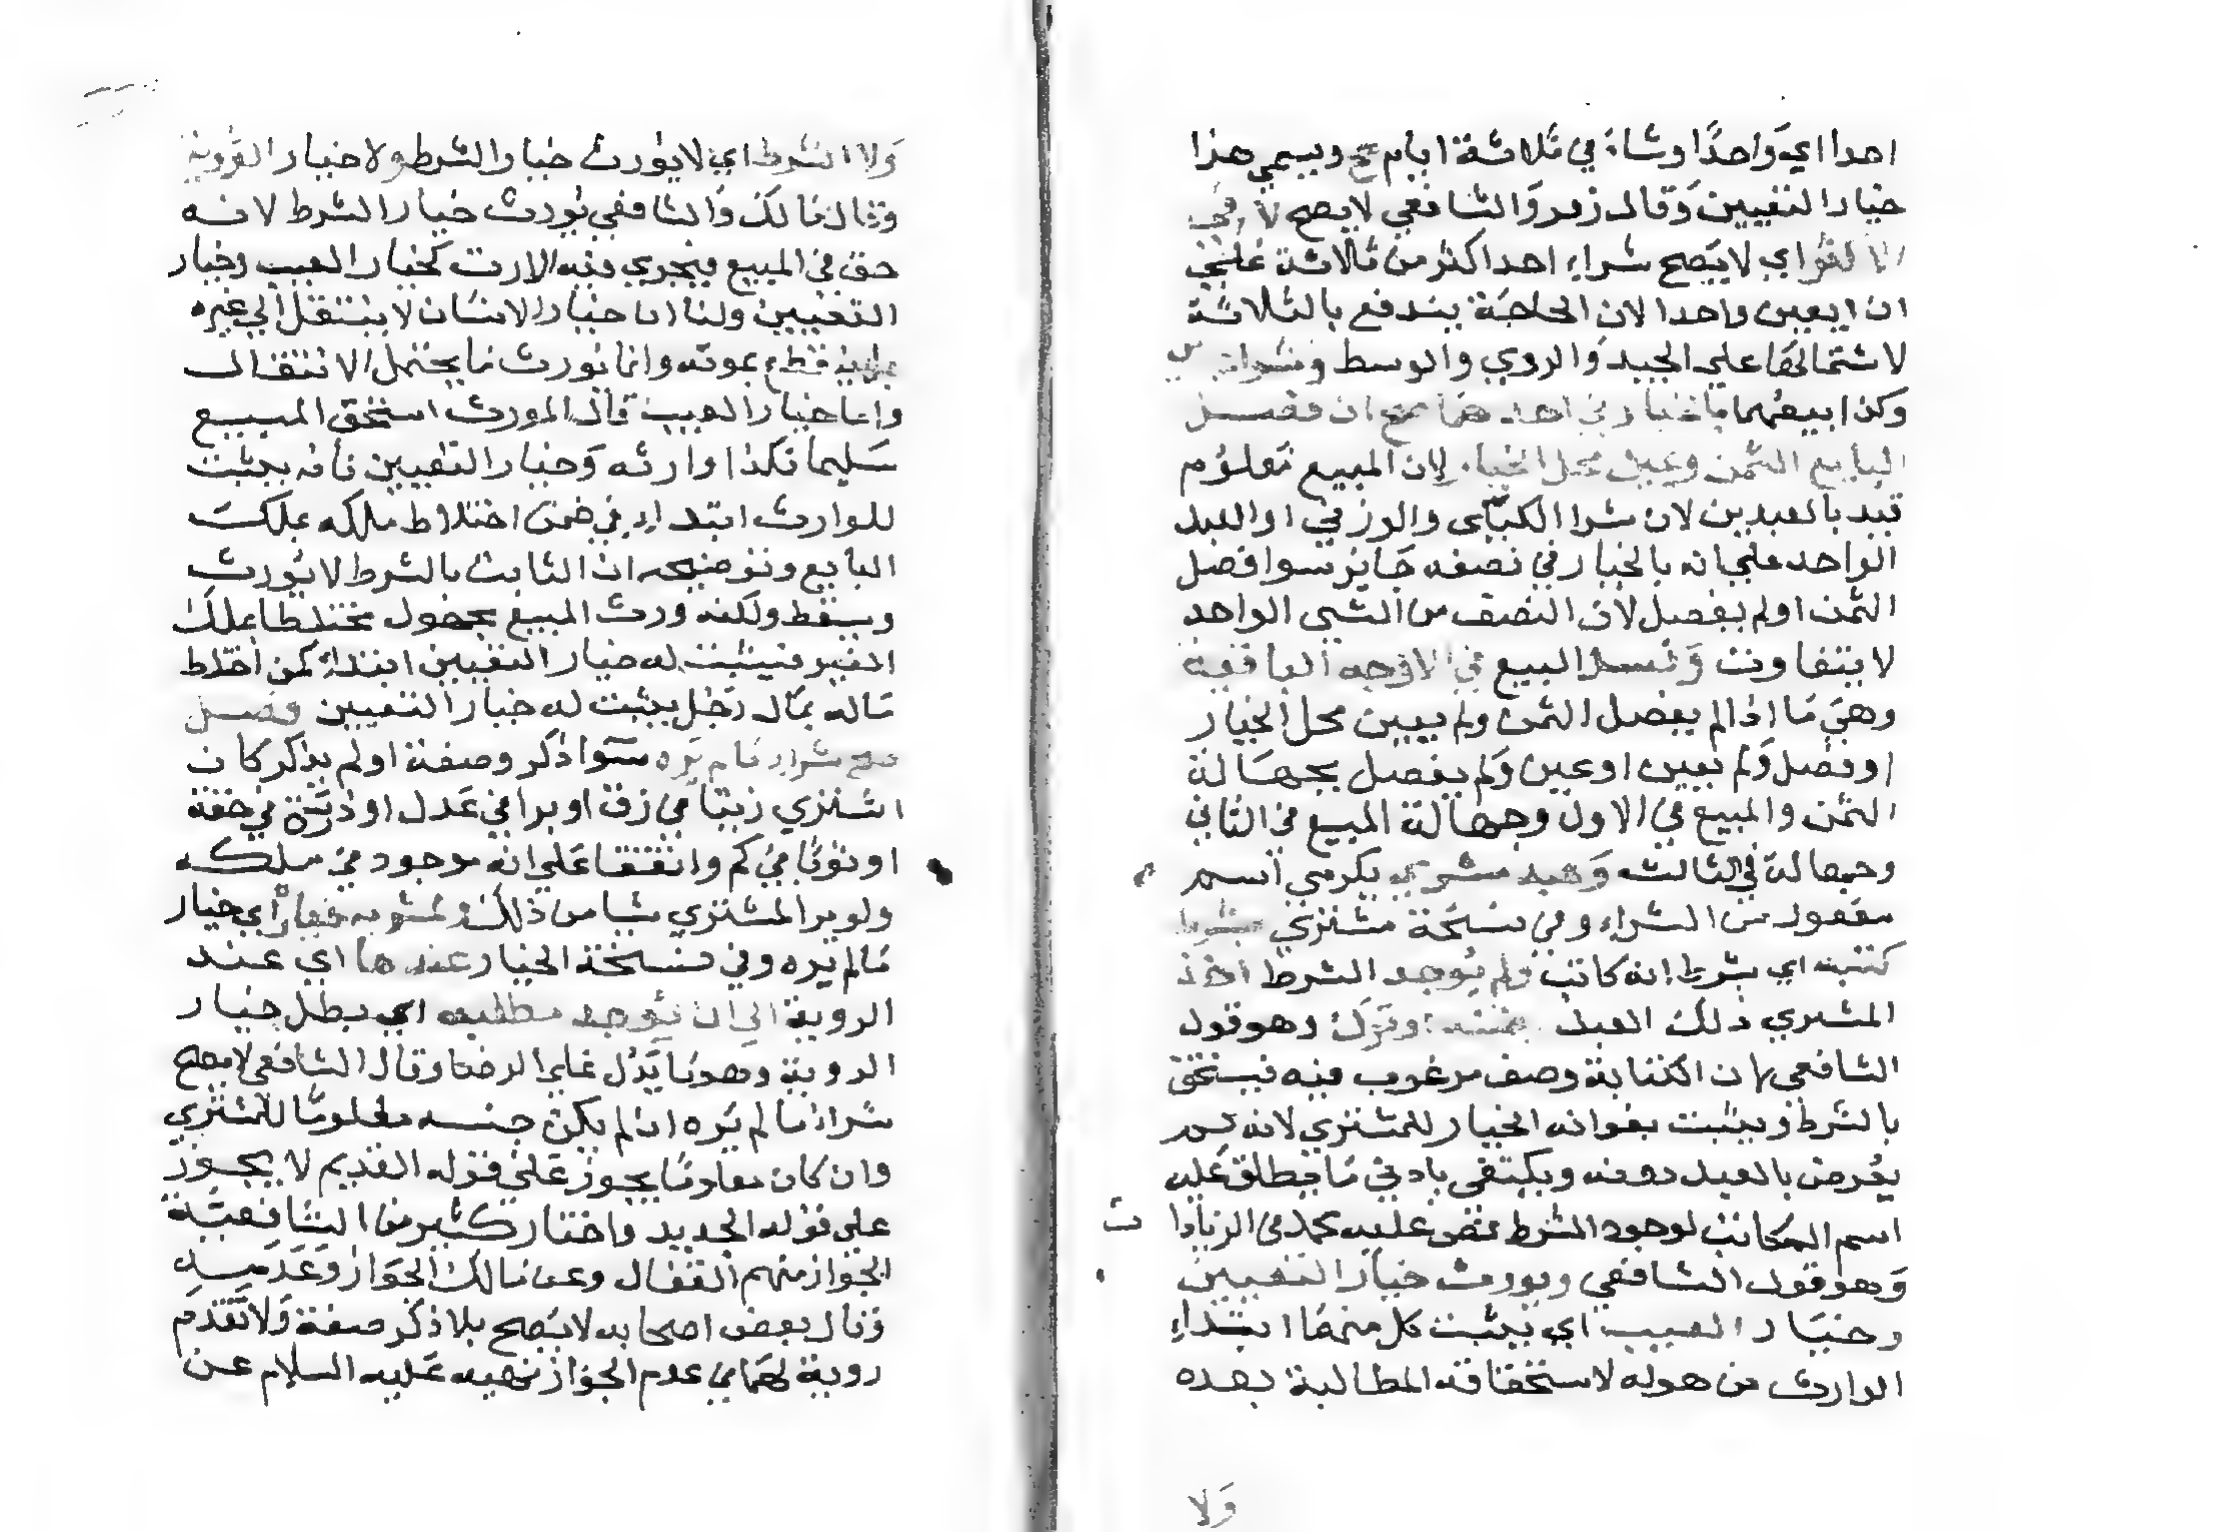 احدا اي وَاحدًا وشاء في ثلاثة ايام صح ويسمي هذا
خيار التعيين وَقال زفر وَالشافعي لا يصح لا في
الاكثر اي لا يَصح شراء احد اكثر من ثلاثة علي
ان ايعين واحدا لان الحاجة يندفع بالثلاثة
لاشتمالها علي الجيد وَالردي والوسط
وكذا بيعهما بالخيار في احدهما صح ان فصل
البايع الثمن وعين محل الخيار لان المبيع مَعلوُم
قيد بالعبدين لان شرا الكيلى والوزني او العبد
الواحد علي انه بالخيار في نصفه جَايز سوا فصل
الثمن او لم يفصل لان النصف من الشي الواحد
لا يتفاوت وَفسد البيع في الاوجه الباقية
وهيَ مَا اذا لم يفصل الثمن ولم يبين محل الخيار
او فصل وَلم يعين او عين وَلم يفصل بجهَالة
الثمن والمبيع في الاول وجهالة المبيع في الثاني
وجهالة في الثالث وَعبد مشري كرمي اسم
مفعول من الشراء وفي نسَخة مشتري بشرط
كتبه اي بشرط انه كاتب ولم يُوجد الشرط اخذ
المشري ذلك العبد بثمنه او تَرَك وهو قول
الشافعي لان الكتابة وصف مرغوب فيه فيستحق
بالشرط ويثبت بفواته الخيار للمشتري لانه لم
يُرض بالعبد دونه ويكتفي بادني مَا يطلق عَليه
اسم الكاتب لوجود الشرط نص عليه محمد في الزيادات
وَهو قول الشافعي ويورث خيار التعيين
وخيَار العيب اي يثبت كل منهمَا ابتداءِ
الوارث من هوله لاستحقاقه المطالبة بعده
وَلا
وَلا الشرط اي لا يوُرث خيار الشرط ولا خيار الرؤية
وَقال مَالك وَالشافعي يُورث خيار الشرط لانه
حق في المبيع فيجري فيه الارث كَخيار العيب وخيار
التعيين ولنا ان خيار الانسَان لا ينتقل الي غيره
قطع بموته وانما يورث مَا يحتمل الانتقال
وامَا خيار العيب فان المورث استحق المبيع
سَليما فكذا وارثه وَخيار التعيين فانه يثبت
للوارث ابتداء في ضمن اختلاط ملكه بملك
البايع وتوضيحه ان الثابت بالشرط لا يُورث
ويسقط ولكنه ورث المبيع بحصول مختلطا بملك
الغير فيثبت له خيار التعيين ابتداءً كمن اختلط
مَاله بمَال رَجل يثبت له خيار التعيين فصل
صح شراء مَا لم يَره سَوا ذكر وصفه او لم يذكر كان
اشتري زيتا في زق او برا في عَدل او ذرَة في حقة
او ثوبًا في كم واتفقا عَلي انه موجود في ملكه
ولم ير المشتري شيا من ذلك ولمشتريه خيار اي خيار
مَا لم يَره وفي نسخة الخيار عندها اي عند
الروية الي ان يُوجد مبطله اي يبطل خيار
الروية وهو مَا يَدُل عَلي الرضا وقال الشافعي لا يصح
شراء مَا لم يَره ان لم يكن جنسه معلومًا للمشتري
وان كان معلومًا يجوز عَلي قوله القديم لا يجوز
علي قوله الجديد واختار كثير من الشافعيَّة
الجواز منهم القفال وعن مَالك الجوَاز وَعَدَمه
وَقال بعض اصحابه لا يَصح بلا ذكر صفة وَلا تَقَدم
روية لهمَا في عدم الجواز نهيه عَليه السلام عن